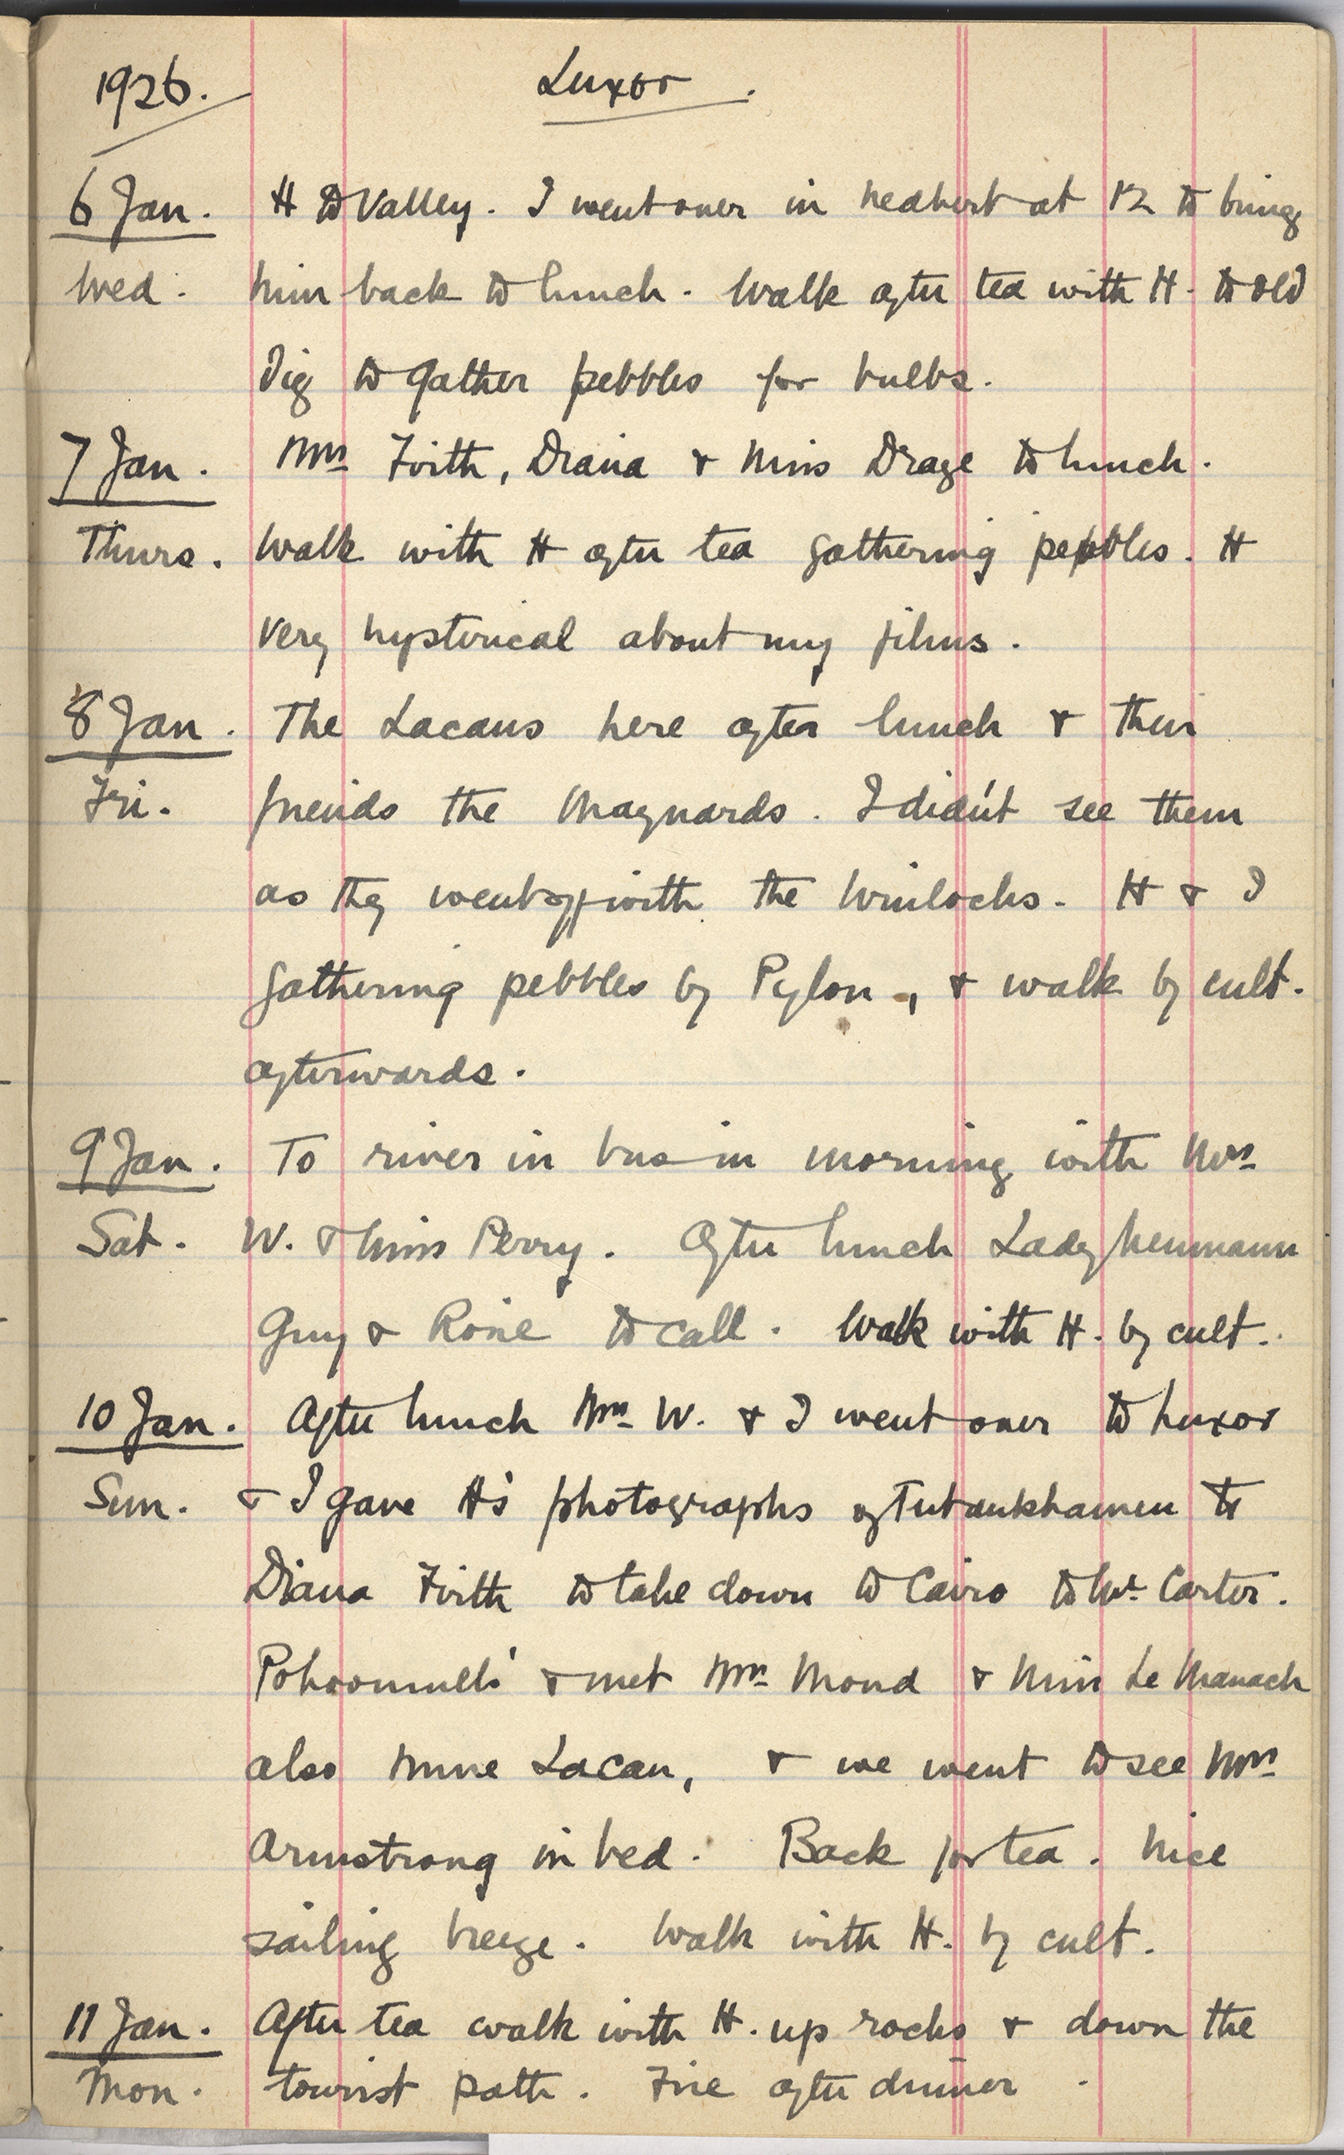 1926. Luxor.
6 Jan. H to Valley. I went over in at 12 to bring
Wed. him back to lunch. Walk after tea with H. to old
dig to gather pebbles for bulbs.
7 Jan. Mrs Firth, Diana & Miss Drage to lunch.
Thurs. Walk with H after tea gathering pebbles. H
very hysterical about my films.
8 Jan. The Lacaus here after lunch & their
Fri. friends the Maynards. I didn't see them
as they went off with the Winlocks. H & I
gathering pebbles by Pylon, & walk by cult.
afterwards.
9 Jan. To river in bus in morning with Mrs
Sat. W. & Miss Perry. After lunch Lady Neumann
Guy & Rosie to call. Walk with H. by cult.
10 Jan. After lunch Mrs W. & I went over to Luxor
Sun. & I gave H's photographs of Tutankhamen to
Diana Firth to take down to Cairo to Mr Carter.
Pohoomull's & met Mrs Mond & Miss Le Manach
also Mme Lacau, & we went to see Mrs
Armstrong in bed. Back for tea. Nice
sailing breeze. Walk with H. by cult.
11 Jan. After tea walk with H. up rocks & down the
Mon. tourist path. Fire after dinner.